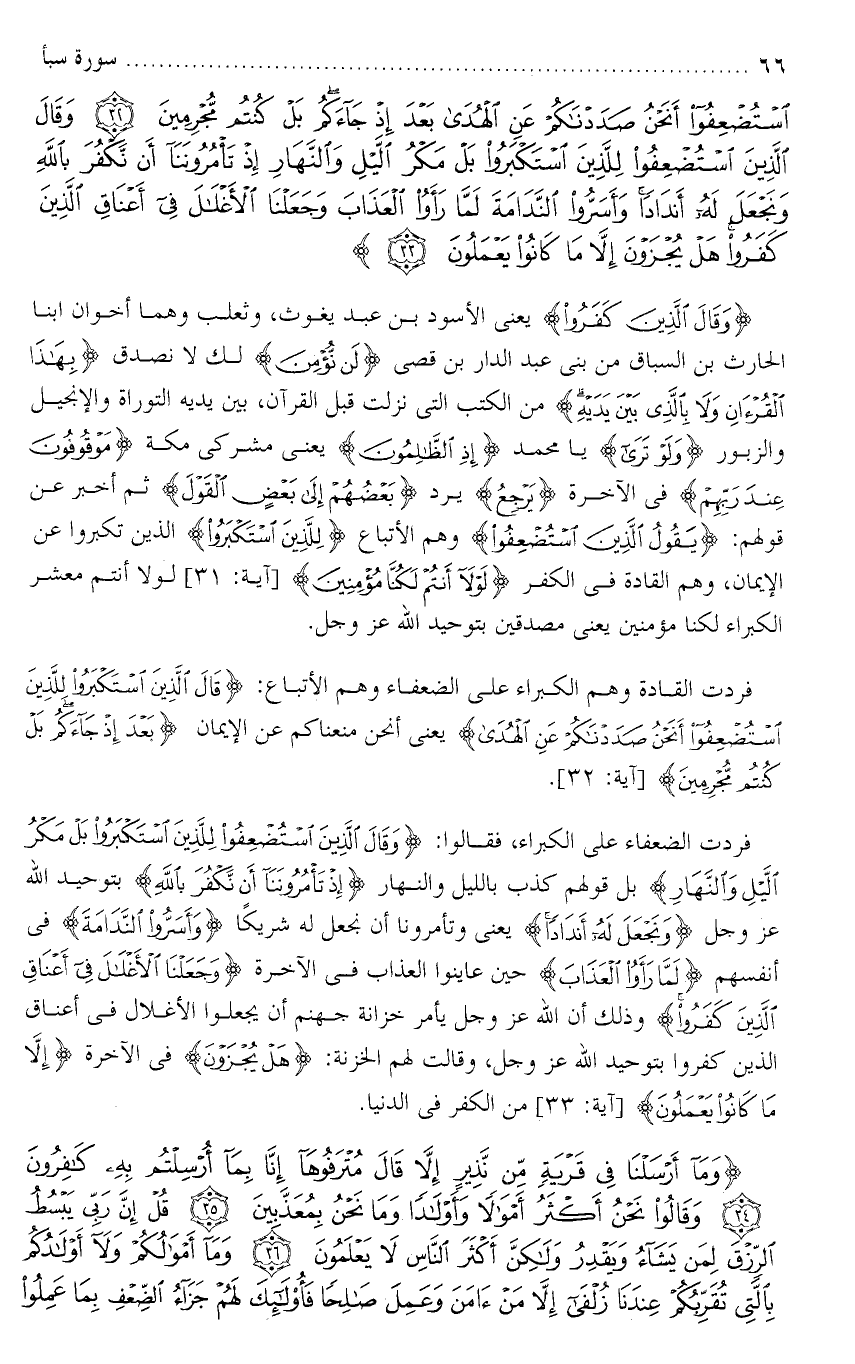 ٦٦ ........................................................................ سورة سبأ
ٱسۡتُضۡعِفُوٓاْ أَنَحۡنُ صَدَدۡنَٰكُمۡ عَنِ ٱلۡهُدَىٰ بَعۡدَ إِذۡ جَآءَكُمۖ بَلۡ كُنتُم مُّجۡرِمِينَ ٣٢ وَقَالَ
ٱلَّذِينَ ٱسۡتُضۡعِفُواْ لِلَّذِينَ ٱسۡتَكۡبَرُواْ بَلۡ مَكۡرُ ٱلَّيۡلِ وَٱلنَّهَارِ إِذۡ تَأۡمُرُونَنَآ أَن نَّكۡفُرَ بِٱللَّهِ
وَنَجۡعَلَ لَهُۥٓ أَندَادٗاۚ وَأَسَرُّواْ ٱلنَّدَامَةَ لَمَّا رَأَوُاْ ٱلۡعَذَابَ وَجَعَلۡنَا ٱلۡأَغۡلَٰلَ فِيٓ أَعۡنَاقِ ٱلَّذِينَ
كَفَرُواْۖ هَلۡ يُجۡزَوۡنَ إِلَّا مَا كَانُواْ يَعۡمَلُونَ ٣٣ ﴾
﴿وَقَالَ ٱلَّذِينَ كَفَرُواْ﴾ يعنى الأسود بن عبد يغوث، وثعلب وهما أخوان ابنا
الحارث بن السباق من بنى عبد الدار بن قصى ﴿لَن نُّؤۡمِنَ﴾ لك لا نصدق ﴿بِهَٰذَا
ٱلۡقُرۡءَانِ وَلَا بِٱلَّذِي بَيۡنَ يَدَيۡهِۗ﴾ من الكتب التى نزلت قبل القرآن، بين يديه التوراة والإنجيل
والزبور ﴿وَلَوۡ تَرَىٰٓ﴾ يا محمد ﴿إِذِ ٱلظَّٰلِمُونَ﴾ يعنى مشركى مكة ﴿مَوۡقُوفُونَ
عِندَ رَبِّهِمۡ﴾ فى الآخرة ﴿يَرۡجِعُ﴾ يرد ﴿بَعۡضُهُمۡ إِلَىٰ بَعۡضٍ ٱلۡقَوۡلَ﴾ ثم أخبر عن
قولهم: ﴿يَقُولُ ٱلَّذِينَ ٱسۡتُضۡعِفُواْ﴾ وهم الأتباع ﴿لِلَّذِينَ ٱسۡتَكۡبَرُواْ﴾ الذين تكبروا عن
الإيمان، وهم القادة فى الكفر ﴿لَوۡلَآ أَنتُمۡ لَكُنَّا مُؤۡمِنِينَ﴾ [آية: ٣١] لولا أنتم معشر
الكبراء لكنا مؤمنين يعنى مصدقين بتوحيد الله عز وجل.
فردت القادة وهم الكبراء على الضعفاء وهم الأتباع: ﴿قَالَ ٱلَّذِينَ ٱسۡتَكۡبَرُواْ لِلَّذِينَ
ٱسۡتُضۡعِفُوٓاْ أَنَحۡنُ صَدَدۡنَٰكُمۡ عَنِ ٱلۡهُدَىٰ﴾ يعنى أنحن منعناكم عن الإيمان ﴿بَعۡدَ إِذۡ جَآءَكُمۖ بَلۡ
كُنتُم مُّجۡرِمِينَ﴾ [آية: ٣٢].
فردت الضعفاء على الكبراء، فقالوا: ﴿وَقَالَ ٱلَّذِينَ ٱسۡتُضۡعِفُواْ لِلَّذِينَ ٱسۡتَكۡبَرُواْ بَلۡ مَكۡرُ
ٱلَّيۡلِ وَٱلنَّهَارِ﴾ بل قولهم كذب بالليل والنهار ﴿إِذۡ تَأۡمُرُونَنَآ أَن نَّكۡفُرَ بِٱللَّهِ﴾ بتوحيد الله
عز وجل ﴿وَنَجۡعَلَ لَهُۥٓ أَندَادٗاۚ﴾ يعنى وتأمرونا أن نجعل له شريكًا ﴿وَأَسَرُّواْ ٱلنَّدَامَةَ﴾ فى
أنفسهم ﴿لَمَّا رَأَوُاْ ٱلۡعَذَابَ﴾ حين عاينوا العذاب فى الآخرة ﴿وَجَعَلۡنَا ٱلۡأَغۡلَٰلَ فِيٓ أَعۡنَاقِ
ٱلَّذِينَ كَفَرُواْۚ﴾ وذلك أن الله عز وجل يأمر خزانة جهنم أن يجعلوا الأغلال فى أعناق
الذين كفروا بتوحيد الله عز وجل، وقالت لهم الخزنة: ﴿هَلۡ يُجۡزَوۡنَ﴾ فى الآخرة ﴿إِلَّا
مَا كَانُواْ يَعۡمَلُونَ﴾ [آية: ٣٣] من الكفر فى الدنيا.
﴿وَمَآ أَرۡسَلۡنَا فِي قَرۡيَةٖ مِّن نَّذِيرٍ إِلَّا قَالَ مُتۡرَفُوهَآ إِنَّا بِمَآ أُرۡسِلۡتُم بِهِۦ كَٰفِرُونَ
٣٤ وَقَالُواْ نَحۡنُ أَكۡثَرُ أَمۡوَٰلٗا وَأَوۡلَٰدٗا وَمَا نَحۡنُ بِمُعَذَّبِينَ ٣٥ قُلۡ إِنَّ رَبِّي يَبۡسُطُ
ٱلرِّزۡقَ لِمَن يَشَآءُ وَيَقۡدِرُ وَلَٰكِنَّ أَكۡثَرَ ٱلنَّاسِ لَا يَعۡلَمُونَ ٣٦ وَمَآ أَمۡوَٰلُكُمۡ وَلَآ أَوۡلَٰدُكُم
بِٱلَّتِي تُقَرِّبُكُمۡ عِندَنَا زُلۡفَىٰٓ إِلَّا مَنۡ ءَامَنَ وَعَمِلَ صَٰلِحٗا فَأُوْلَٰٓئِكَ لَهُمۡ جَزَآءُ ٱلضِّعۡفِ بِمَا عَمِلُواْ